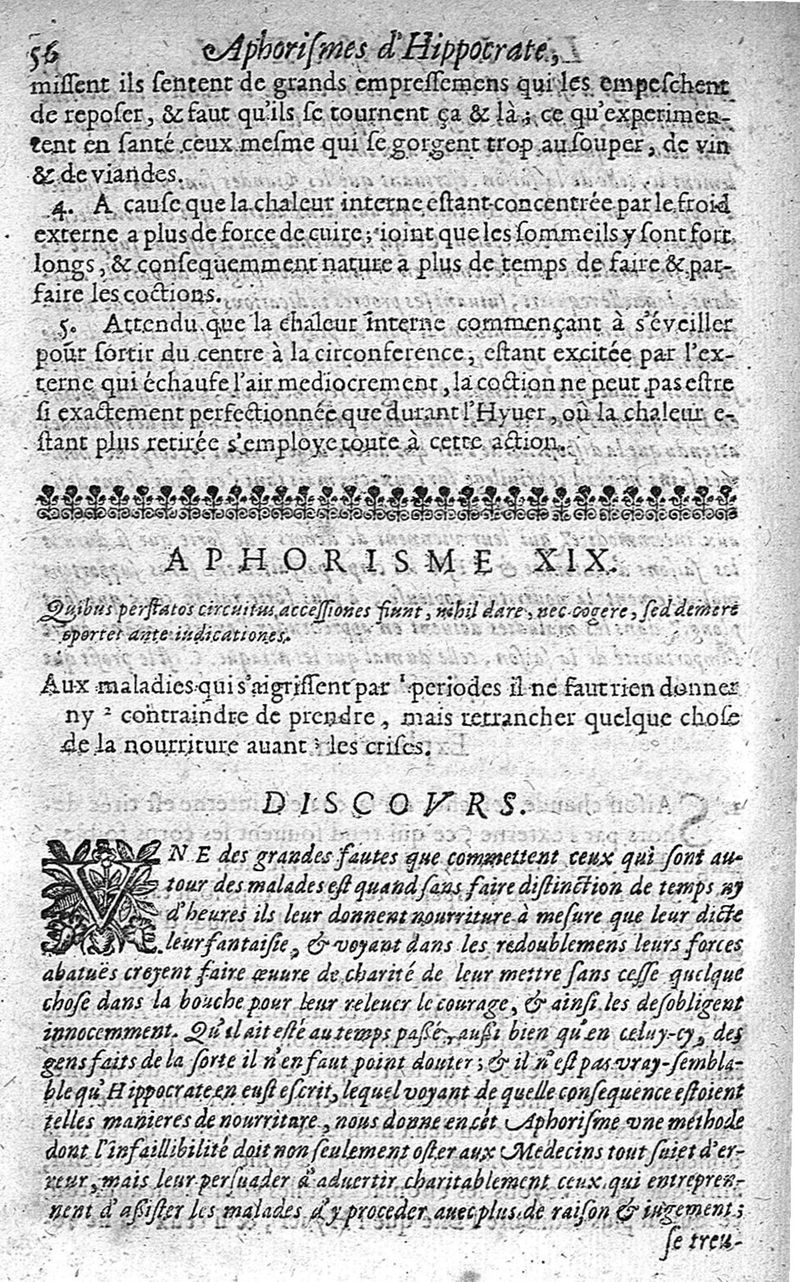 56 Aphoriſmes d'Hippocrate,
miſſent ils ſentent de grands empreſſemens qui les empeſchent
de repoſer, & faut qu'ils ſe tournent ça & là; ce qu'experimen-
tent en ſanté ceux meſme qui ſe gorgent trop au ſouper, de vin
& de viandes.
4. A cauſe que la chaleur interne eſtant concentrée par le froid
externe a plus de force de cuire; ioint que les ſommeils y ſont fort
longs, & conſequemment nature a plus de temps de faire & par-
faire les coctions.
5. Attendu que la chaleur interne commençant à s'éveiller
pour ſortir du centre à la circonference, eſtant excitée par l'ex-
terne qui échaufe l'air mediocrement, la coction ne peut pas eſtre
ſi exactement perfectionnée que durant l'Hyuer, où la chaleur e-
ſtant plus retirée s'employe toute à cette action.
APHORISME XIX.
Quibus perſtatos circuitus acceſſiones fiunt, nihil dare, nec cogere, ſed demere
oportet ante iudicationes.
Aux maladies qui s'aigriſſent par ¹ periodes il ne faut rien donner
ny ² contraindre de prendre, mais retrancher quelque choſe
de la nourriture auant ³ les criſes.
DISCOVRS.
VNE des grandes fautes que commettent ceux qui ſont au-
tour des malades eſt quand ſans faire diſtinction de temps ny
d'heures ils leur donnent nourriture à meſure que leur dicte
leur fantaiſie, & voyant dans les redoublemens leurs forces
abatuës croyent faire œuvre de charité de leur mettre ſans ceſſe quelque
choſe dans la bouche pour leur releuer le courage, & ainſi les deſobligent
innocemment. Qu'il ait eſté au temps paßé, außi bien qu'en celuy-cy, des
gens faits de la ſorte il n'en faut point douter; & il n'eſt pas vray-ſembla-
ble qu'Hippocrate en euſt eſcrit, lequel voyant de quelle conſequence eſtoient
telles manieres de nourriture, nous donne en cét Aphoriſme vne méthode
dont l'infaillibilité doit non ſeulement oſter aux Medecins tout ſuiet d'er-
reur, mais leur perſuader d'aduertir charitablement ceux qui entrepren-
nent d'aßiſter les malades d'y proceder auec plus de raiſon & iugement;
ſe treu-